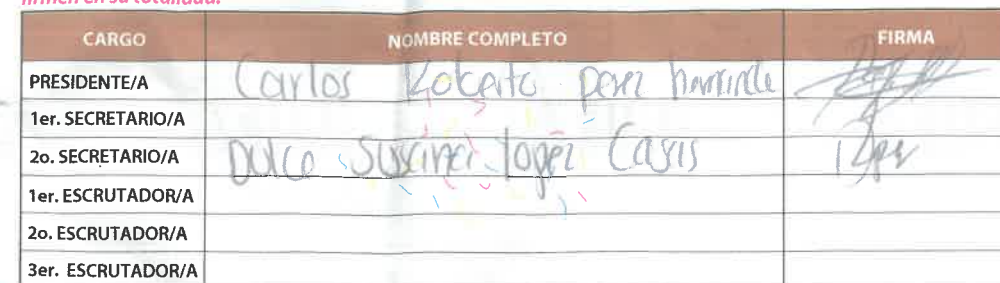 firmen en su totalidad.
CARGO NOMBRE COMPLETO FIRMA
PRESIDENTE/A Carlos Roberto perez
1er. SECRETARIO/A
2o. SECRETARIO/A Dulce Susana lopez Casis
1er. ESCRUTADOR/A
2o. ESCRUTADOR/A
3er. ESCRUTADOR/A